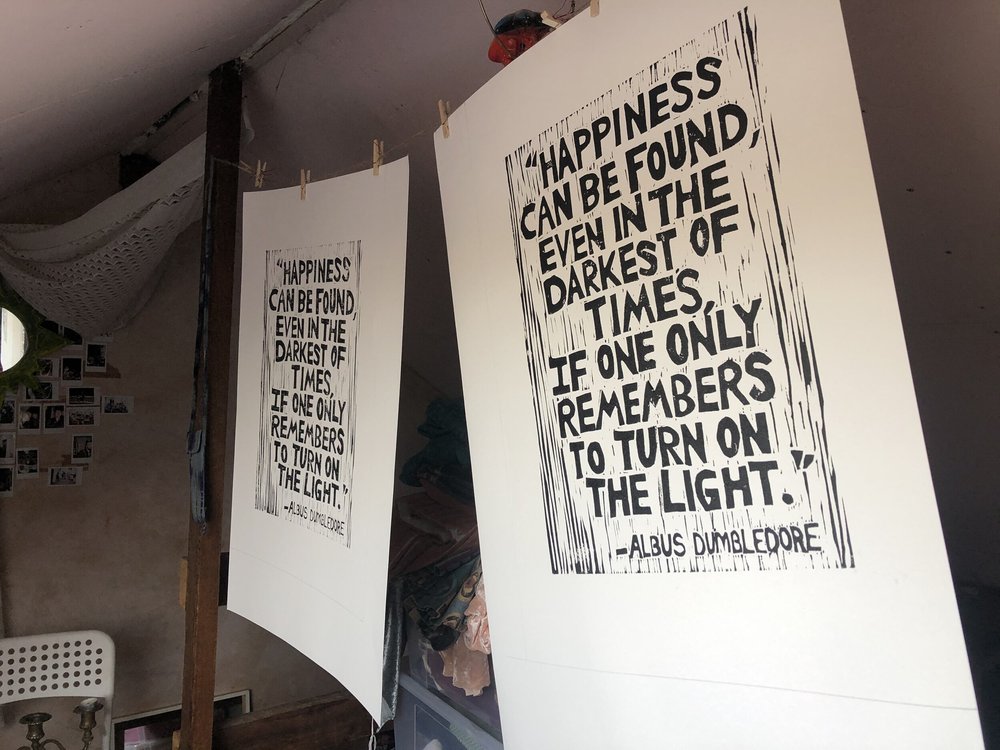 "HAPPINESS
CAN BE FOUND,
EVEN IN THE
DARKEST OF
TIMES,
IF ONE ONLY
REMEMBERS
TO TURN ON
THE LIGHT."
-ALBUS DUMBLEDORE
"HAPPINESS
CAN BE FOUND,
EVEN IN THE
DARKEST OF
TIMES,
IF ONE ONLY
REMEMBERS
TO TURN ON
THE LIGHT."
-ALBUS DUMBLEDORE